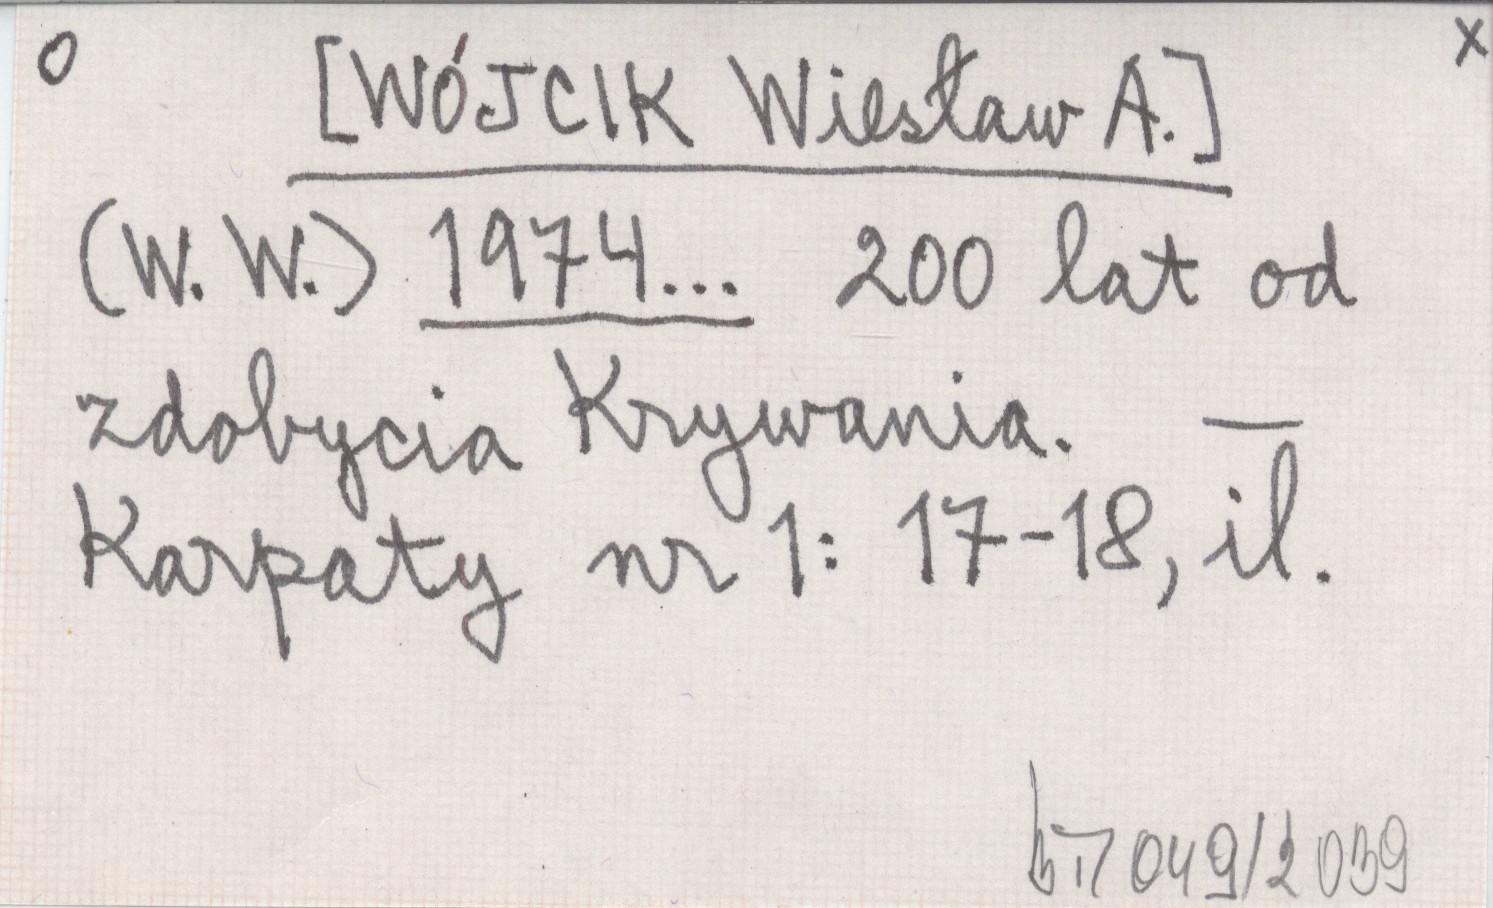 O X
[WÓJCIK Wiesław A.]
(W. W.) 1974... 200 lat od
zdobycia Krywania. —
Karpaty nr 1: 17-18, il.
049/2039